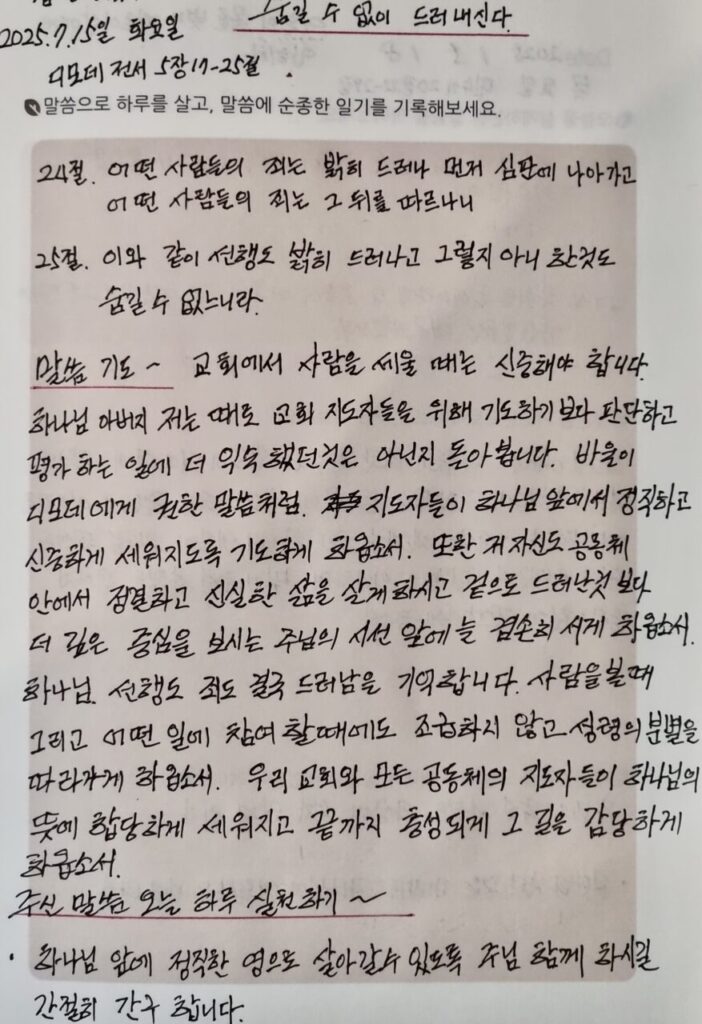 숨길 수 없이 드러내신다.
2025.7.15일 화요일
디모데 전서 5장17-25절.
말씀으로 하루를 살고, 말씀에 순종한 일기를 기록해보세요.
24절. 어떤 사람들의 죄는 밝히 드러나 먼저 심판에 나아가고
어떤 사람들의 죄는 그 뒤를 따르나니
25절. 이와 같이 선행도 밝히 드러나고 그렇지 아니 한것도
숨길 수 없느니라.
말씀 기도 ~ 교회에서 사람을 세울 때는 신중해야 합니다.
하나님 아버지 저는 때로 교회 지도자들을 위해 기도하기 보다 판단하고
평가 하는 일에 더 익숙 했던것은 아닌지 돌아 봅니다. 바울이
디모데에게 권한 말씀처럼. 지도자들이 하나님 앞에서 정직하고
신중하게 세워지도록 기도하게 하옵소서. 또한 저 자신도 공동체
안에서 정결하고 신실한 삶을 살게 하시고 겉으로 드러난것 보다
더 깊은 중심을 보시는 주님의 시선 앞에 늘 겸손히 서게 하옵소서.
하나님. 선행도 죄도 결국 드러남을 기억합니다. 사람을볼때
그리고 어떤 일에 참여 할때에도 조급하지 않고 성령의 분별을
따라가게 하옵소서. 우리 교회와 모든 공동체의 지도자들이 하나님의
뜻에 합당하게 세워지고 끝까지 충성되게 그 길을 감당하게
하옵소서.
주신 말씀 오늘 하루 실천하기 ~
· 하나님 앞에 정직한 영으로 살아갈수 있도록 주님 함께 하시길
간절히 간구 합니다.